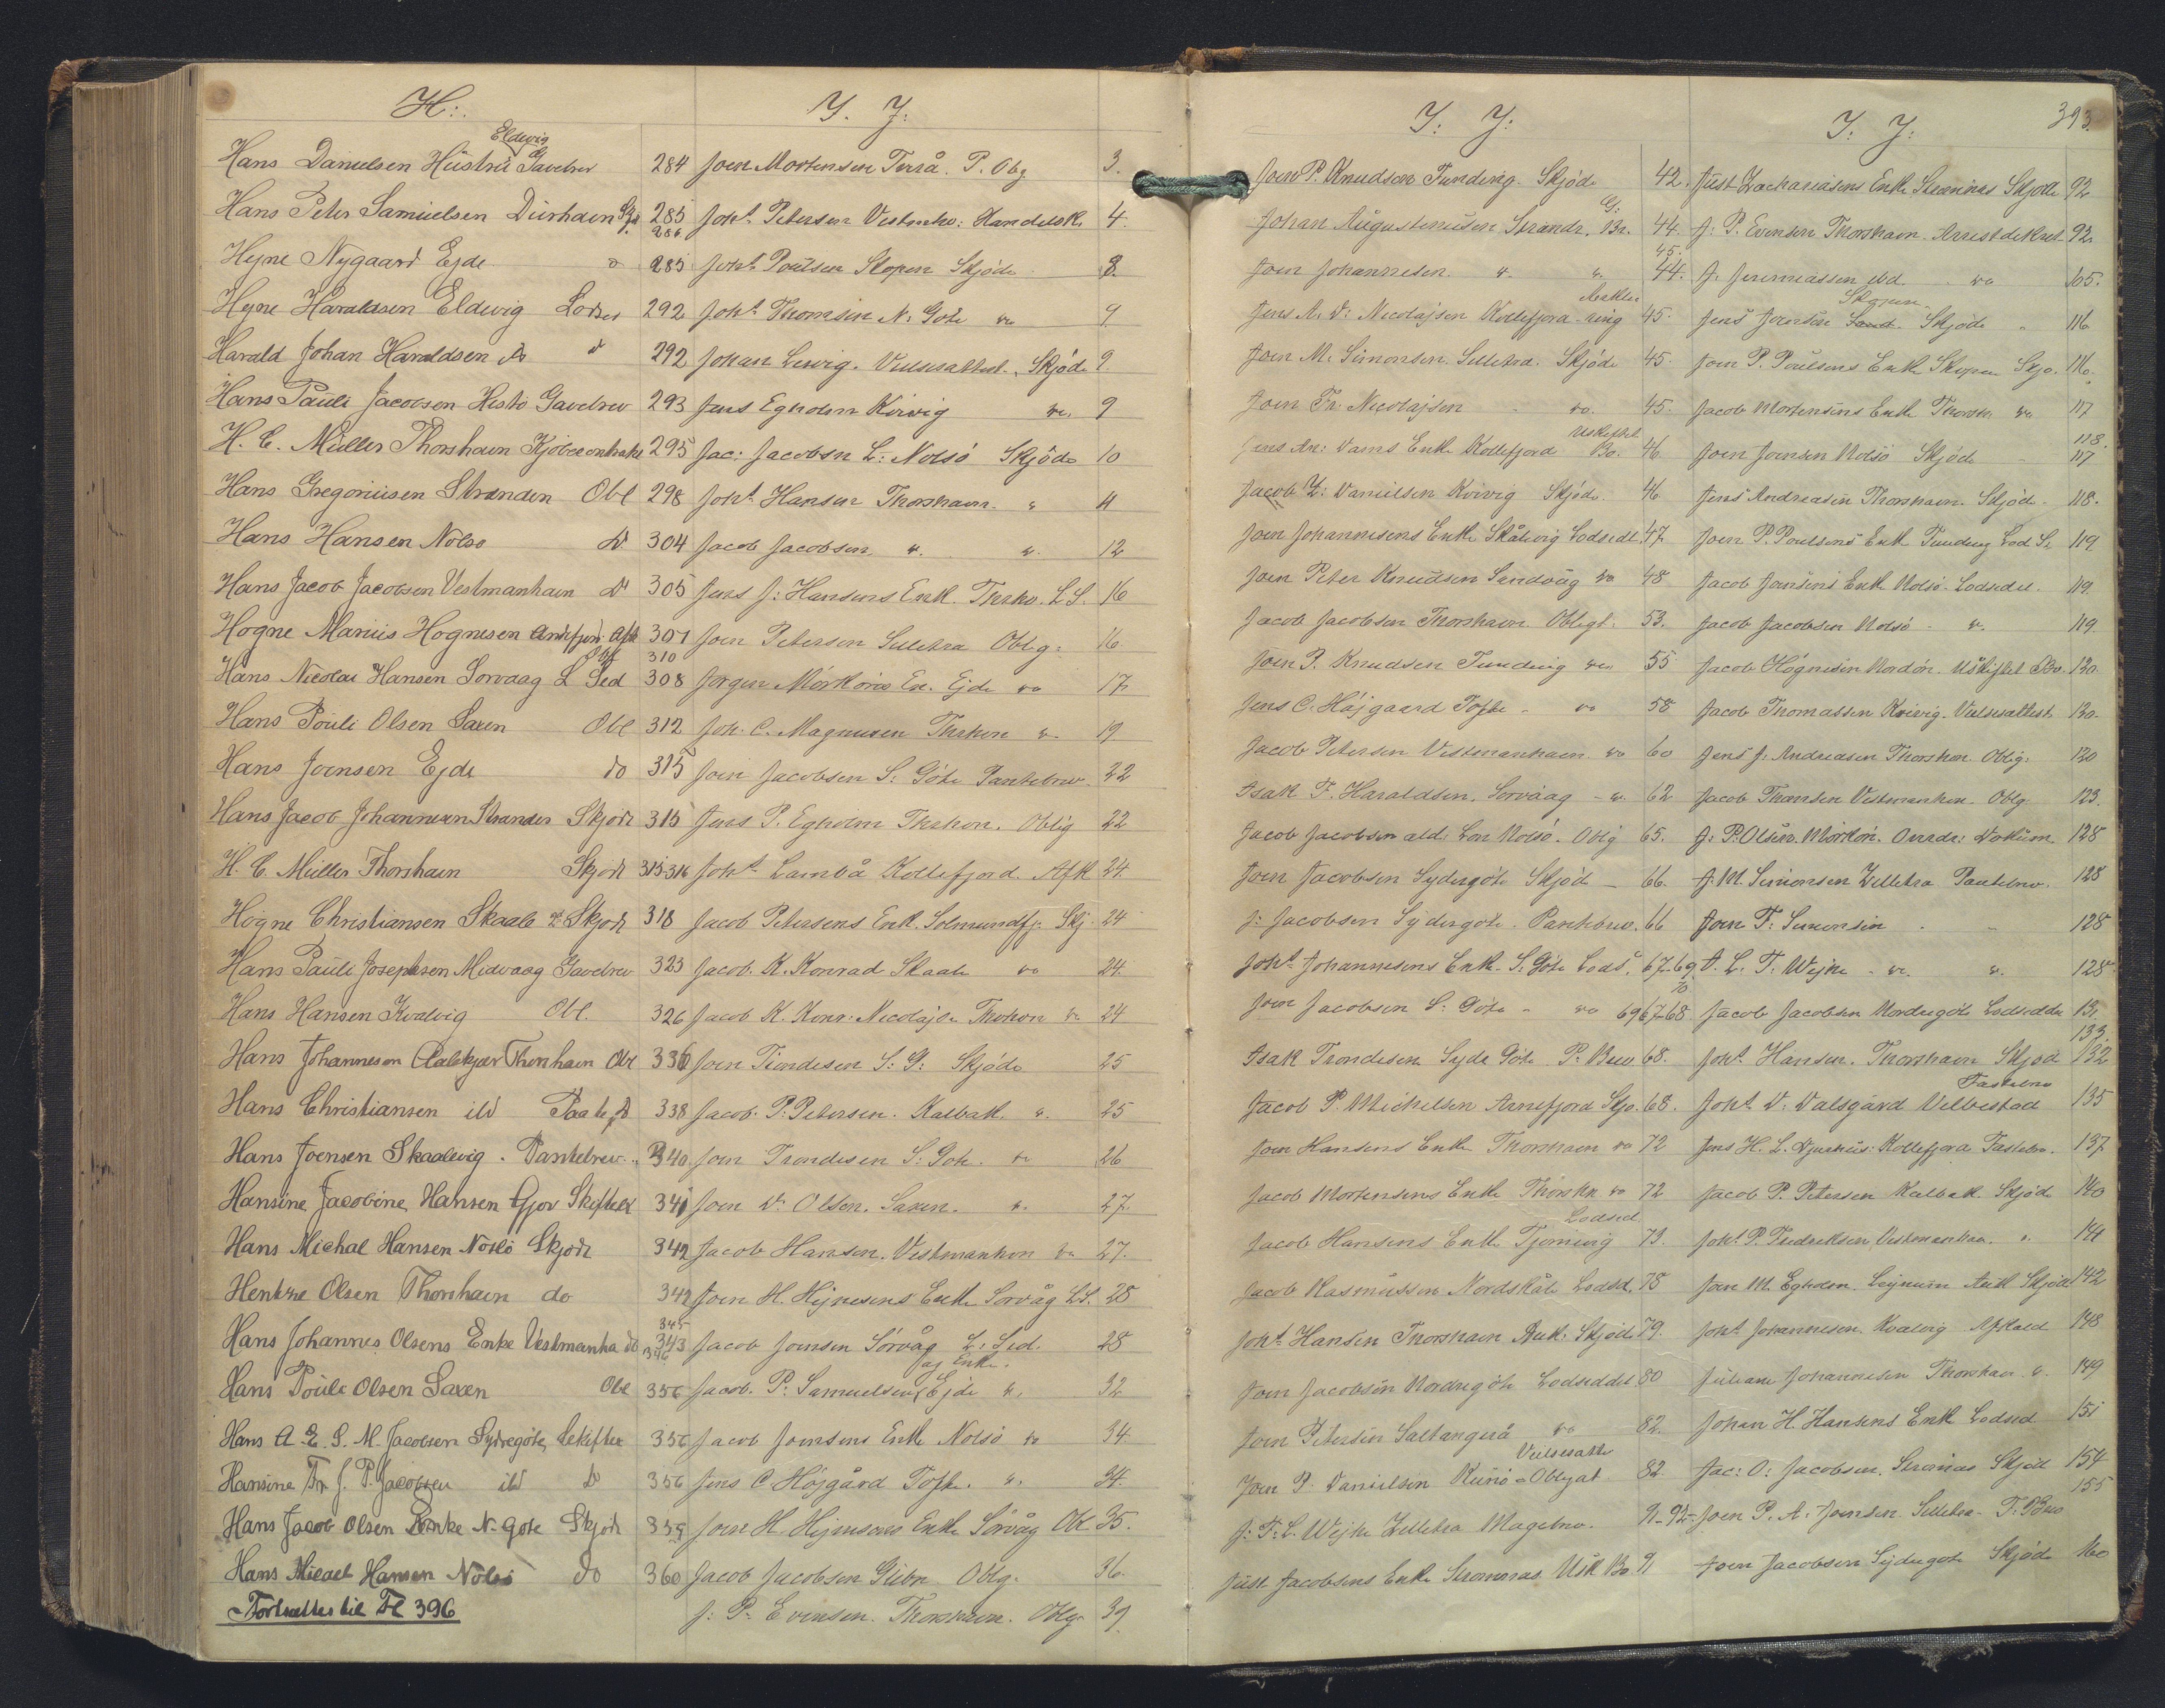 H:.
Eldevig
Hans Danielsen Hüstrü Gavebrev 284
Hans Peter Samuelsen Diürhaen Skjø 285
286
Hejne Nygaard Ejde do 285
Hejne Haraldsen Eldevig Lodsed 292
Harald Johan Haraldsen do do 292
Hans Pauli Jacobsen Histö Gavebrev 293
H. C. Müller Thorshavn Kjöbecontrakt 295
Hans Gregoriüsen Stranden Obl 298
Hans Hansen Nolsö do 304
Hans Jacob Jacobsen Vestmanhavn do 305
Hogne Mariüs Hognesen Andefjord Afk 307
Skj 310
Hans Nicolai Hansen Sorvaag L Sed 308
Hans Pouli Olsen Saxen Obl 312
Hans Joensen Ejde do 315
Hans Jacob Johannesen Strander Skjöde 315
H. C. Müller Thorshavn Skjöde 315-316
Hogne Christiansen Skaale Skjöde 318
Hans Pauli Josephsen Midvaag Gavebrev 323
Hans Hansen Kvalvig Obl. 326
Hans Johannesen Aalekjær Thorshavn Obl 336
Hans Christiansen ibd do 338
Hans Joensen Skaalevig. Pantebrev. 340
Hansine Jacobine Hansen Gjov Skifteex 341
Hans Michal Hansen Nolsö Skjöde 342
Henkre Olsen Thorshavn do 342
345
Hans Johannes Olsens Enke Vestmanha do 343
346
Hans Pouli Olsen Saxen Obl 356
Hans A. E. S. M. Jacobsen Sydregöte, Skifteex 356
Hansine Fr. J. P. Jacobsen ibd do 356
Hans Jacob Olsen Enke N. Gote Skjöde 359
Hans Micael Hansen Nolsö do 360
Fortsættes til Fl 396
I. J:
Joen Mortensen Terrå. P. Obg 3.
Joh.s Petersen Vestmha: Handelsk. 4.
Joh.s Poulsen Skopen Skjöde 8.
Joh.s Thomsen N: Gote do 9
Johan Lervig. Vielsesattest. Skjöde 9.
Jens Egholm Kvivig do. 9
Jac: Jacobsn L: Nolsö Skjöde 10
Joh.s Hansen Thorshavn. " 11
Jacob Jacobsen ". ". 12
Jens J: Hansens Enk. Thrshv. L.S. 16
Joen Petersen Selletra Oblig: 16.
Jørgen Mörköres En. Ejde do 17.
Joh. C. Magnussen Thrshvn do 19
Joen Jacobsen S: Göte Pantebrev. 22
Jens P. Egholm Thrshvn. Oblig 22
Joh.s Lambå Kollefjord Afk 24.
Jacob Petersens Enk. Solmundfj: Skj. 24
Jacob. K. Konrad Skaale do 24.
Jacob K. Konr: Nicolajsn Thrshvn do 24
Joen Tróndesen S: G: Skjöde 25
Jacob. P. Petersen. Kalbak. ". 25
Joen Trondesen S: Gote. do 26
Joen D. Olsen. Saxen. ". 27.
Jacob Hansen. Vestmanhvn do 27.
Joen H. Hejnesens Enke Sorvåg L.S. 28
Jacob Joensen Sörvåg L: Sed. 28
og Enke.
Jacob. P: Samuelsen, Ejde ". 32
Jacob Joensens Enke Nolsö do 34
Jens C. Höjgård Tofte. ". 34.
Joen H. Hejnesens Enke Sörvåg Ob 35.
Jacob Jacobsen Glibr. Oblg. 36.
J: P: Evensen. Thorshavn. Oblg. 39
I: J:
Joen P. Knudsen Tunding. Skjöde 42.
G:
Johan Augustinusen Strandr. Br. 44.
45.
Joen Johannesen. ". ". 44.
Jens M. D: Nicolajsen Kollefjord -ning 45.
Joen M. Simonsen. Selletra. Skjöde 45.
Joen Fr: Nicolajsen do. 45.
Uskiftet
Jens An: Dams Enke Kollefjord Bo. 46
Jacob Z: Danielsen Kvivig Skjöde. 46
Joen Johannesens Enke Skålevig Lodsedl. 47
Joen Peter Knudsen Sandvåg do 48
Jacob Jacobsen Thorshavn. Obligt: 53.
Joen P. Knudsen Tunding do 55
Jens C. Höjgaard Tofte - do 58
Jacob Petersen Vestmanhavn do 60
Isak F. Haraldsen. Sorvåag - ". 62
Jacob Jacobsen ald: Lon Nolsö. Oblg 65.
Joen Jacobsen Sydregöte Skjöde - 66.
J: Jacobsen Sydregöte. Pantebrev. 66
Joh.s Johannesens Enke. S. Göte Lods. 67-69.
70
Joen Jacobsen S: Göte - do 69 67-68
Isak Trondesen Sydr Göte. P: Brev 68.
Jacob P. Michelsen Arnefjord Skjö. 68.
Joen Hansens Enke Thorshavn do 72
Jacob Mortensens Enke Thorshn do 72
Lodsed
Jacob Hansens Enke Tjörnevig 73.
Jacob Rasmussen Nordskåle Lodsd. 78
Joh.s Hansen Thorshavn Auk: Skjöde. 79.
Joen Jacobsen Nordregöte Lodseddel 80
Joen Petersen Saltangerå do 82.
Vielsesatt
Joen P. Danielsen Kunö - Obligat 82.
J: F: L. Wejhe Zelletra Magebrev. 91-92-
Just Jacobsens Enke Strömnæs Usk Bo 91
393.
I: J:
Just Zachariasens Enke Strömnæs Skjöde 92
J: P. Evensen Thorshavn. Arrestdekret 92
J. Jeremiassen ibd. do 105.
Skopen
Jens Joensen Sand. Skjöde " 116
Joen P. Poulsens Enke Skopen Skjö. 116.
Jacob Mortensens Enke Thorshn do 117
118.
Joen Joensen Nolsö Skjöde 117
Jens Andreasen Thorshavn. Skjöde 118.
Joen P. Poulsens Enke Tunding Lod Se 119
Jacob Joensens Enke Nolsö. Lodseddel. 119.
Jacob Jacobsen Nolsö ". 119.
Jacob Högnesen Nordör. Uskiftet Bo. 120.
Jacob Thomassen Kvivig. Vielsesattest 120.
Jens J. Andreasen Thorshvn. Oblig: 120
Jacob Thomsen Vestmanhvn. Oblg. 123.
J: P. Olsen. Mörkör. Overdr: Dokum. 128
J. M. Simonsen Zelletra Pantebrev. 128
Joen F: Simonsen 128
J. L. F: Wejhe ". ". 128
Jacob Jacobsen Nordregöte Lodseddel 131
133.
Joh.s Hansen. Thorshavn Skjöde 132
Fæstebrev
Joh.s D: Dalsgård Velbestad 135
Jens H. L. Djurhüs: Kollefjord Fæstebr. 137
Jacob P. Petersen Kalbak. Skjöde 140
Joh.s P. Fredreksen Vestmanhvn. ". 141
Joen M. Egholm. Lejnum Auk Skjöde 142
Joh.s Johannesen. Kvalvig Afkald 148
Juliane Johannesen Thorshavn ". 149
Johan H. Hansens Enke Lodsed 151
Jac: O: Jacobsen. Strömnæs Skjöde 154
155
Joen P. A. Joensen. Selletra. F: Brev
Joen Jacobsen Sydregote Skjöde 160